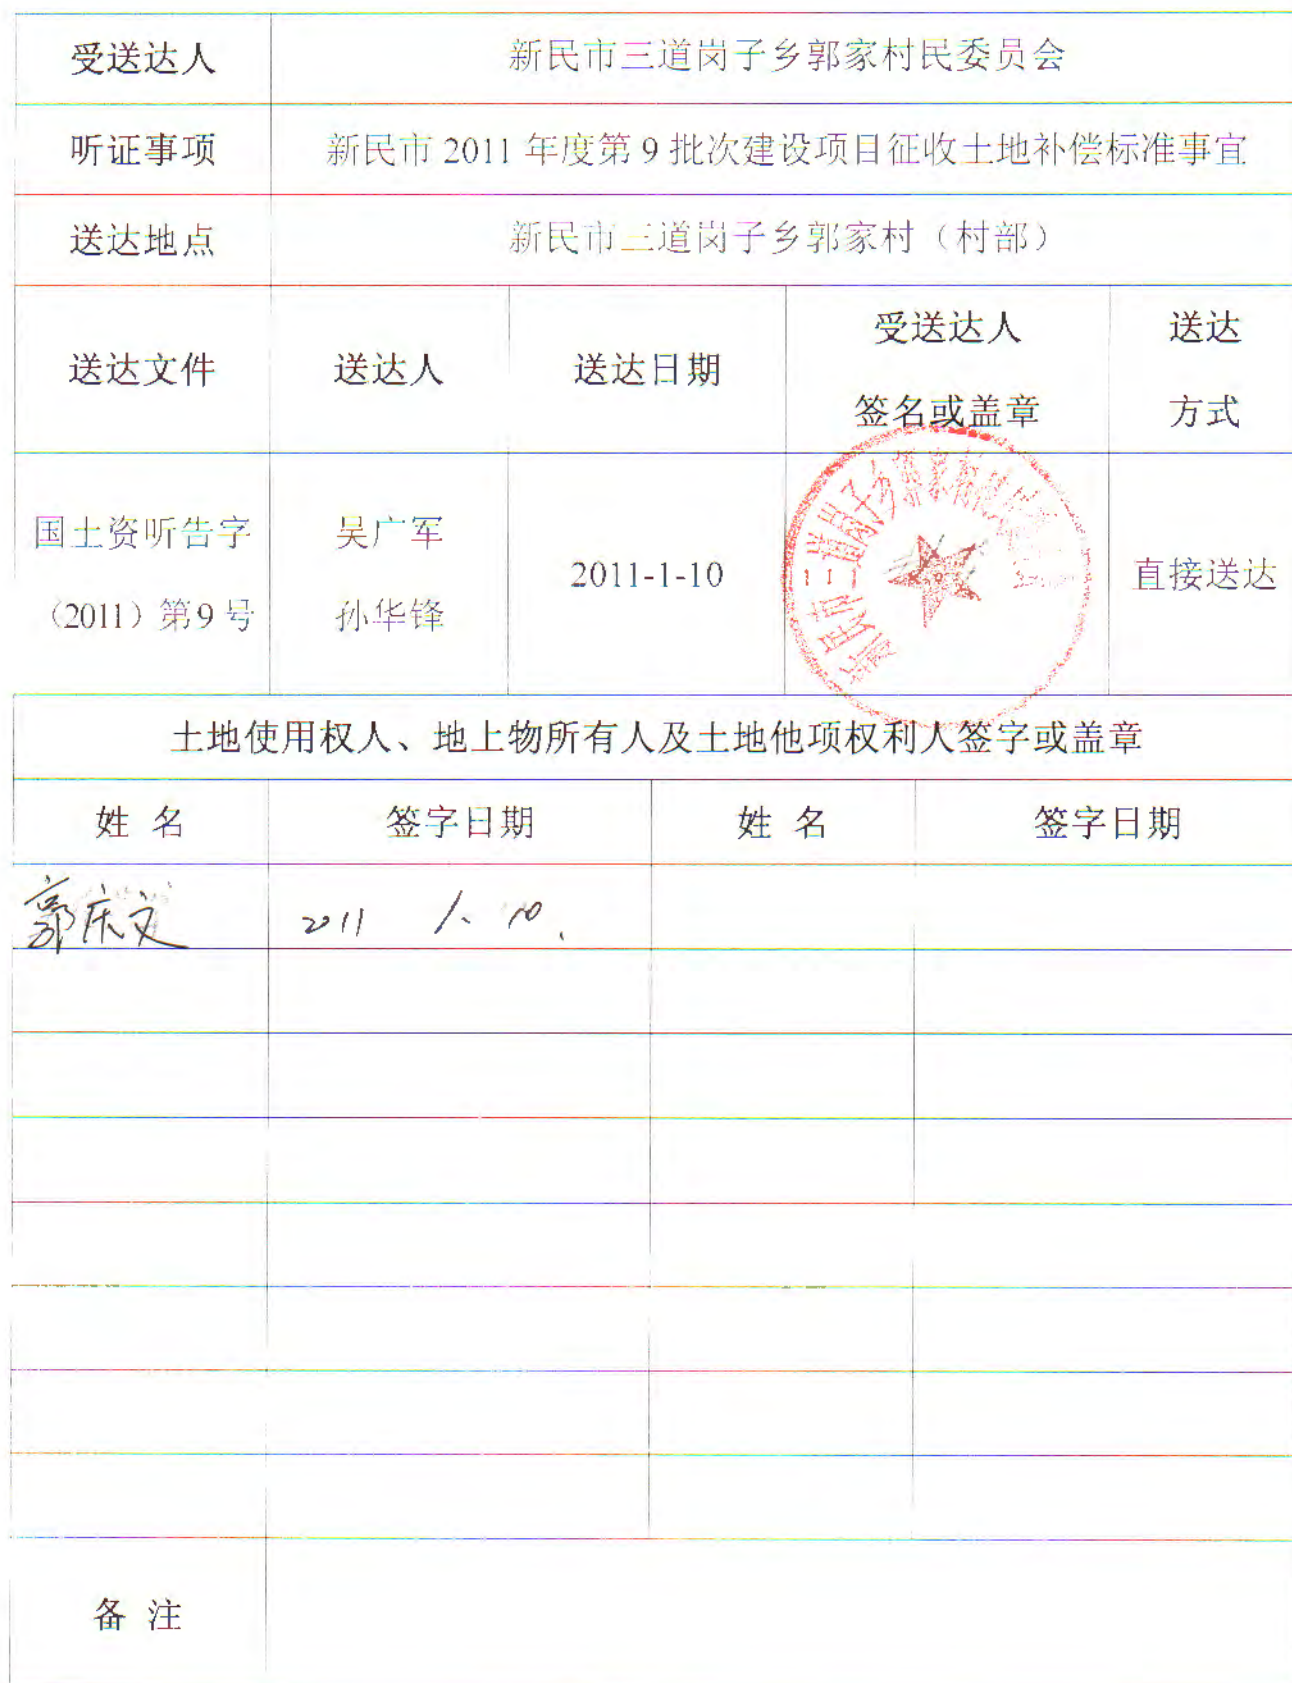 受送达人 新民市三道岗子乡郭家村民委员会
听证事项 新民市 2011 年度第 9 批次建设项目征收土地补偿标准事宜
送达地点 新民市三道岗子乡郭家村（村部）
送达文件 送达人 送达日期 受送达人 签名或盖章 送达 方式
国土资听告字 （2011）第9号 吴广军 孙华锋 2011-1-10 直接送达
新民市三道岗子乡郭家村
土地使用权人、地上物所有人及土地他项权利人签字或盖章
姓 名 签字日期 姓 名 签字日期
郭庆文 2011 1. 10.
备 注